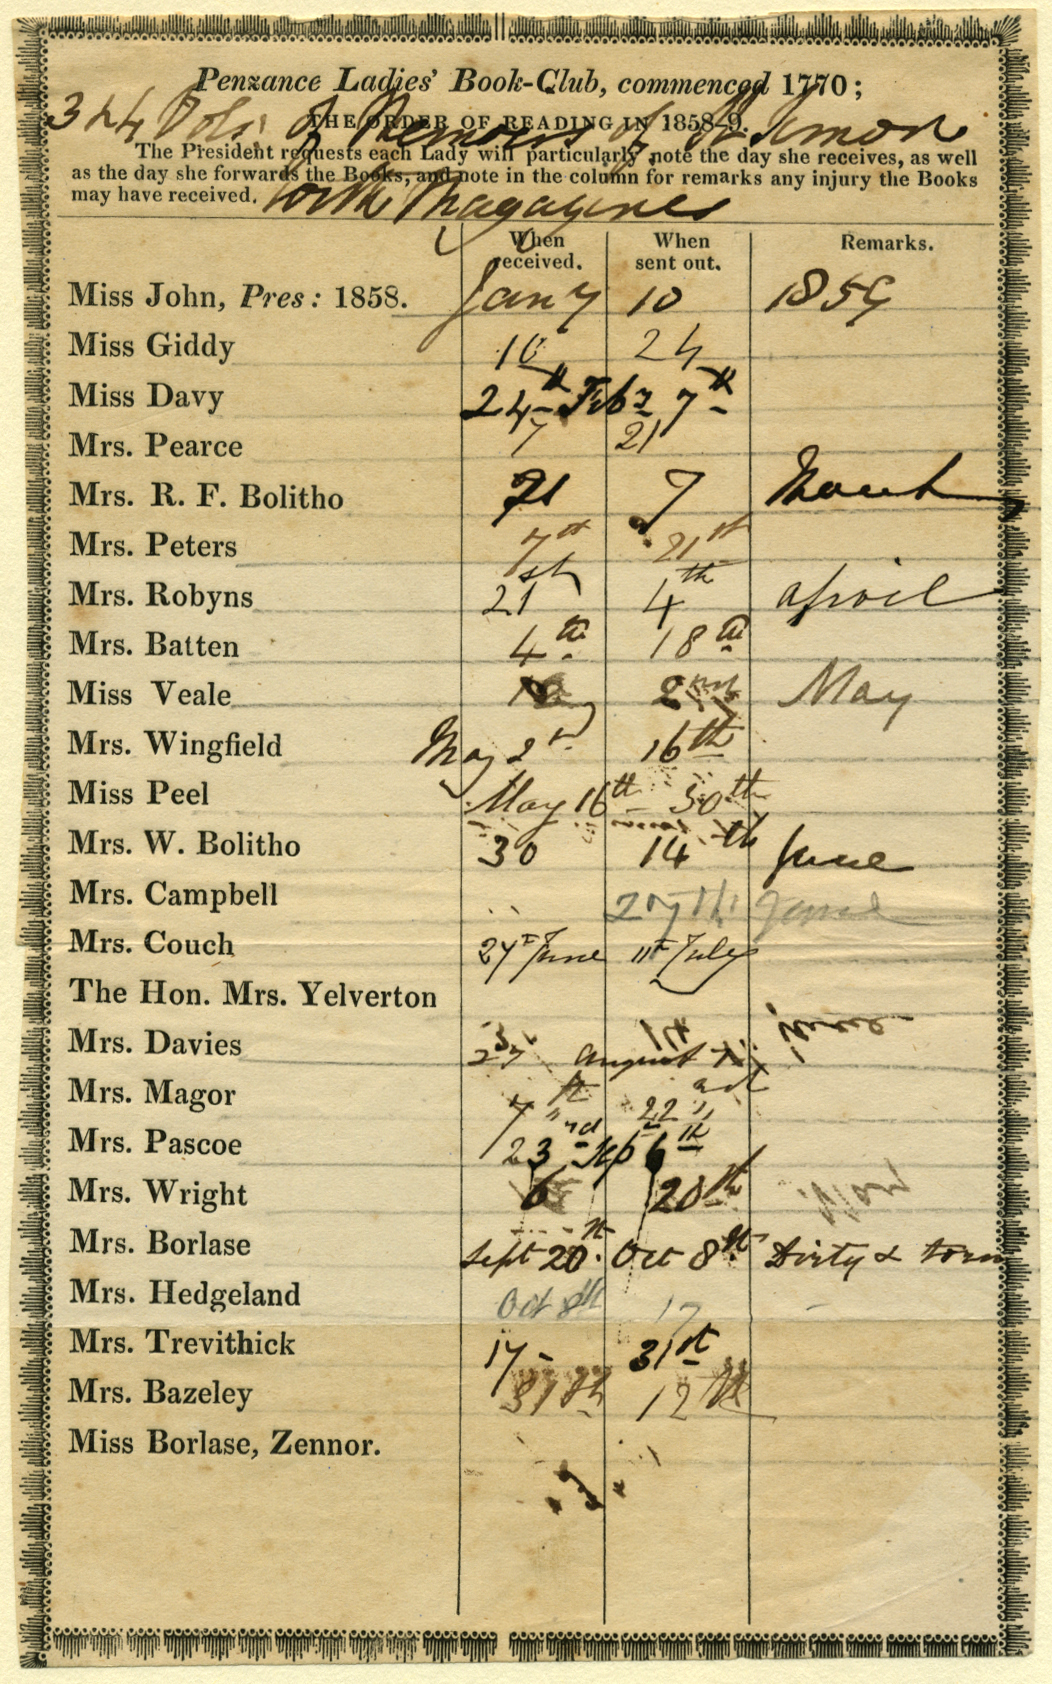 Penzance Ladies' Book-Club, commenced 1770;
3 & 4 Vols: of Memoirs of St Simon
THE ORDER OF READING IN 1858-9.
The President requests each Lady will particularly note the day she receives, as well
as the day she forwards the Books, and note in the column for remarks any injury the Books
may have received.
with Magazines
When received. When sent out. Remarks.
Miss John, Pres: 1858. Jany 10 1859
Miss Giddy 10 24
Miss Davy 24th Feby 7th
Mrs. Pearce 7 21
Mrs. R. F. Bolitho 21 7 March
Mrs. Peters 7th 21st
Mrs. Robyns 21st 4th April
Mrs. Batten 4th 18th
Miss Veale 2nd May
Mrs. Wingfield May 2nd 16th
Miss Peel May 16th 30th
Mrs. W. Bolitho 30 14th June
Mrs. Campbell 27th June
Mrs. Couch 27th June 11th July
The Hon. Mrs. Yelverton
Mrs. Davies August
Mrs. Magor 7 22
Mrs. Pascoe 23rd Sep 6th
Mrs. Wright 6 20th
Mrs. Borlase Sept 20th. Oct 8th. Dirty & torn
Mrs. Hedgeland Oct 8th 17
Mrs. Trevithick 17 31st
Mrs. Bazeley 31 12th
Miss Borlase, Zennor.